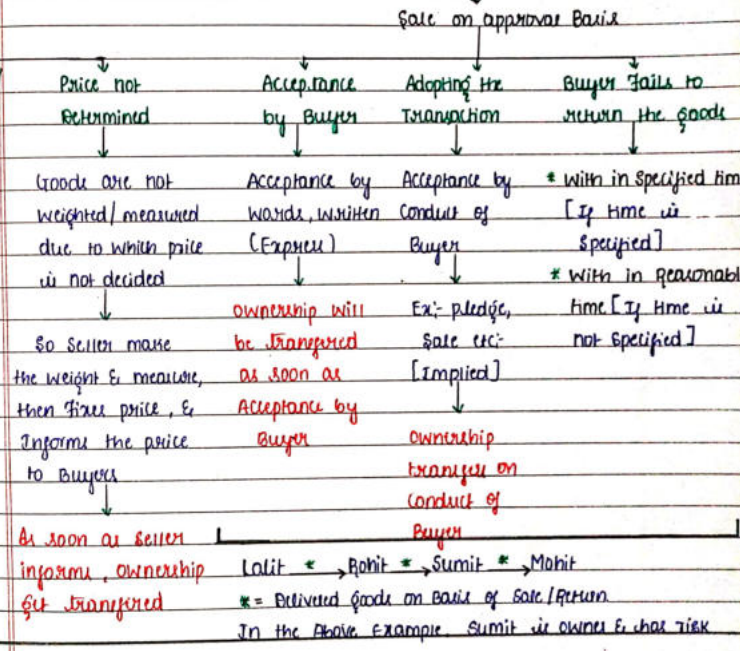 Sale on approval Basis
Price not
Determined
Goods are not
weighted/measured
due to which price
is not decided
So Seller make
the weight & measure,
then Fixes price, &
Informs the price
to Buyers
As soon as seller
informs, ownership
get transfired
Acceptance
by Buyer
Acceptance by
words, written
(Express)
ownership will
be transfired
as soon as
Acceptance by
Buyer
Adopting the
Transaction
Acceptance by
Conduct of
Buyer
Ex:- pledge,
Sale etc:-
[Implied]
ownership
transfer on
Conduct of
Buyer
Buyer Fails to
return the goods
* with in Specified tim
[If time is
Specified]
* with in Reasonabl
time [If time is
not Specified]
Lalit * → Rohit * → Sumit * → Mohit
* = Delivered goods on Basis of Sale/Return
In the Above Example, Sumit is owner & has risk